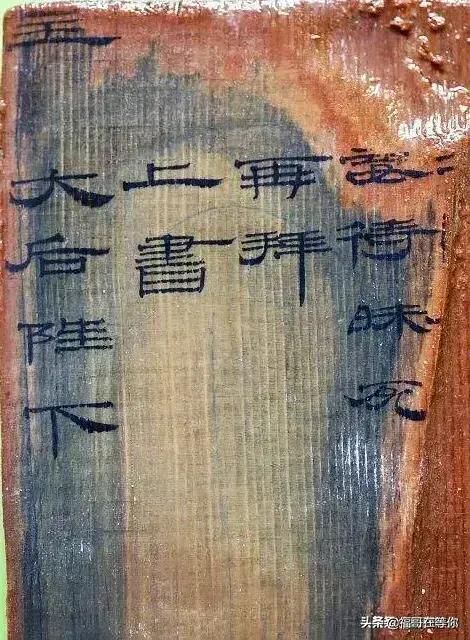 妾待昧死
再拜
上書
王大后陛下
头条 @福哥在等你